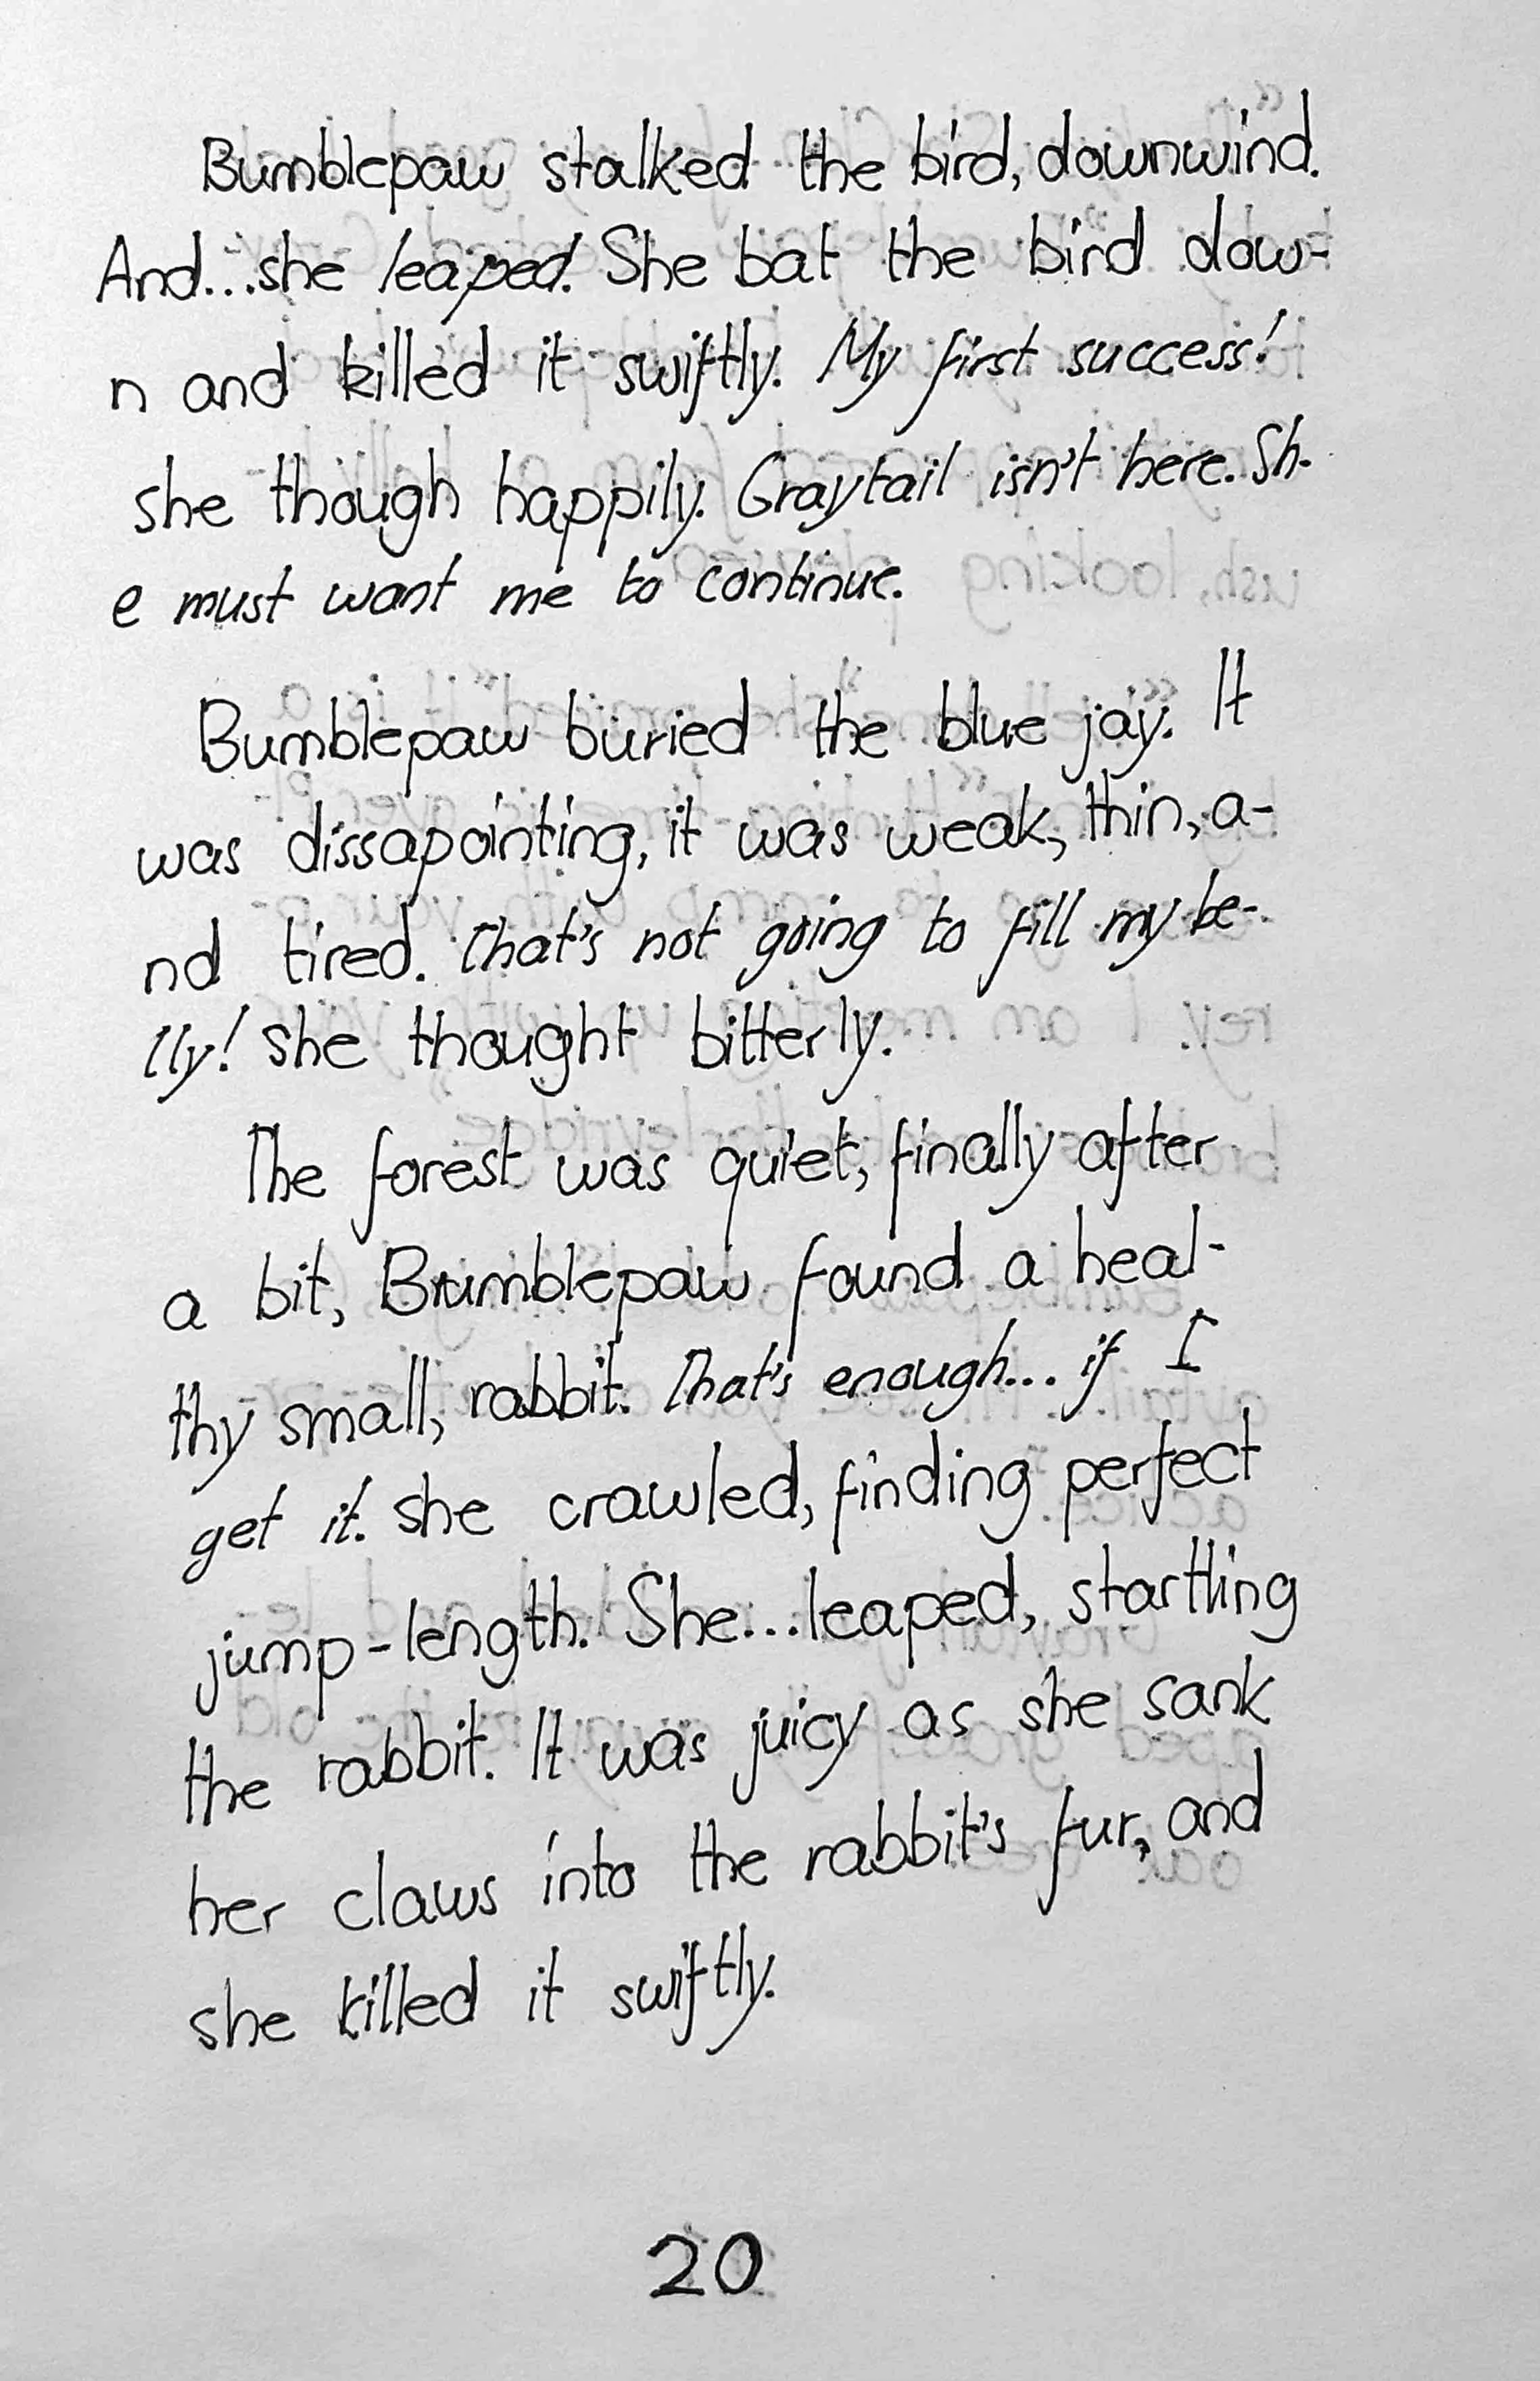 Bumblepaw stalked the bird, downwind.
And...she leaped. She bat the bird dow-
n and killed it swiftly. My first success!
she though happily. Graytail isn't here. Sh-
e must want me to continue.
Bumblepaw buried the blue jay. It
was dissapointing, it was weak, thin, a-
nd tired. That's not going to fill my be-
lly! she thought bitterly.
The forest was quiet, finally after
a bit, Bumblepaw found a heal-
thy small, rabbit. That's enough... if I
get it. she crawled, finding perfect
jump-length. She...leaped, startling
the rabbit. It was juicy as she sank
her claws into the rabbit's fur, and
she killed it swiftly.
20